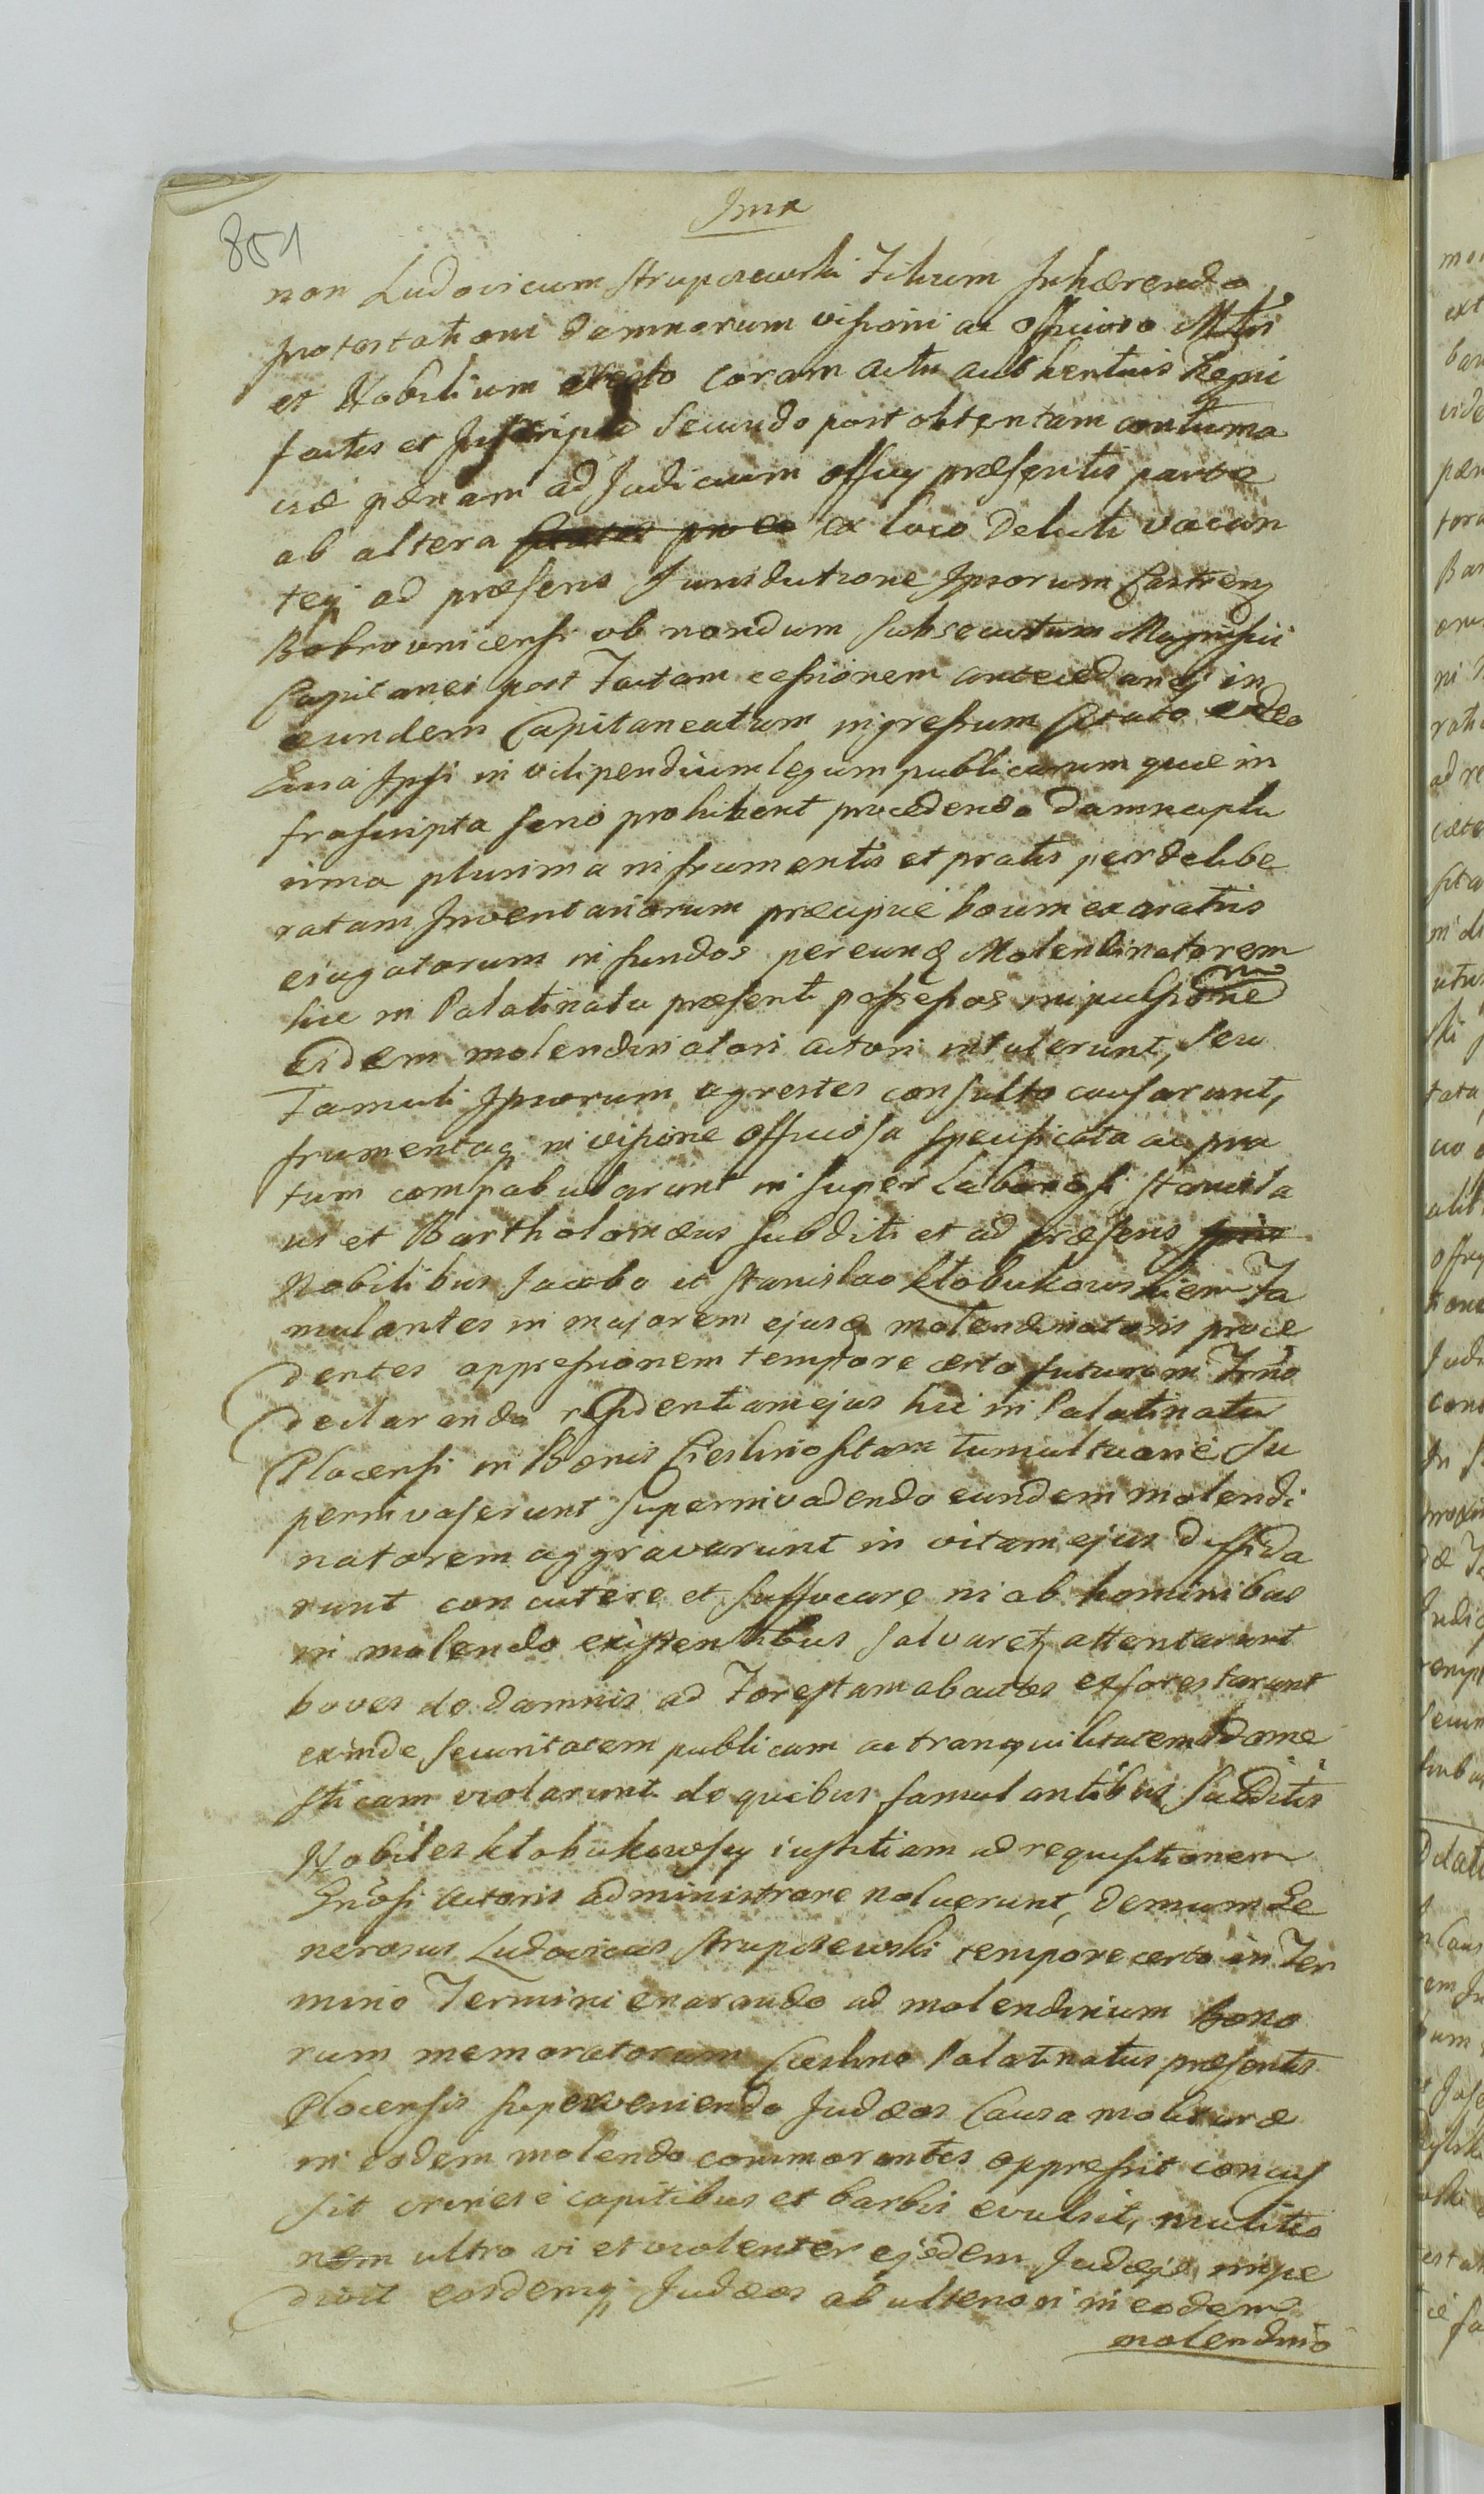 851
non Ludovicum Strupczewski Filium Inhærendo
protestationi damnorum visioni ac
et Nobilium coram actu authenticis
factis et secundo post obtentam contuma
ciæ pænam ad Judicium officij præsentis parte
ab altera ex loco delicti vacan
teq ad præsens Jurisdictione Ipsorum Castren
Bobrownicensi ob nondum subsecutum Magnifici
Capitanei post factam cessionem antecedaneq in
eundem Capitaneatum ingressum citato ex eo
Quia Ipsi in vilipendium legum publicarum quæ in
frascripta seno prohibent procedendo damna plu
rima plurima in frumentis et pratis per delibe
ratam Inventariorum præcipue boum ex aratris
ejugatorum in fundos per eunq Molendinatorem
hic in Palatinatu præsenti possessos impulsionem
eidem molendinatori actori intulerunt, seu
Famuli Ipsorum agrestes consulto causarunt,
frumentaq in visione officiosa specificata ac pra
tum compabularunt insuper Laboriosi Stanisla
us et Bartholomæus subditi et ad præsens
Nobilibus Jacobo et Stanislao Kłobukowskiem Fa
mulantes in majorem ejusq molendinatoris proce
dentes oppressionem tempore certo futuro in Trno
declarando residentiam ejus hic in Palatinatu
Plocensi in Bonis Cieslino sitam tumultuarie su
perinvaserunt superinvadendo eundem molendi
natorem aggravarunt in vitam ejus diffida
runt concutere et suffocare ni ab hominibus
in molendo existentibus salvaret attentarunt
boves de damnis ad Forestam abactos exforestarunt
exinde securitatem publicam ac tranquilitatem dome
sticam violarunt de quibus famulantibus subditis
Nobiles Kłobukowscy iustitiam ad requisitionem
Gnosi Actoris administrare noluerunt, demum Ge
nerosus Ludovicus Strupczewski tempore certo in Ter
mino Termini enarando ad molendinum Bono
rum memoratorum Cieslino Palatinatus præsentis
Plocensis superveniendo Judæos Causa molituræ
in eodem molendo commorantes oppressit concus
sit crines e capitibus et barbis evulsit, mulitio
nem ultro vi et violenter ejsdem Judæis impe
divit eosdemq Judæos ab ulteriori in eodem
molendino